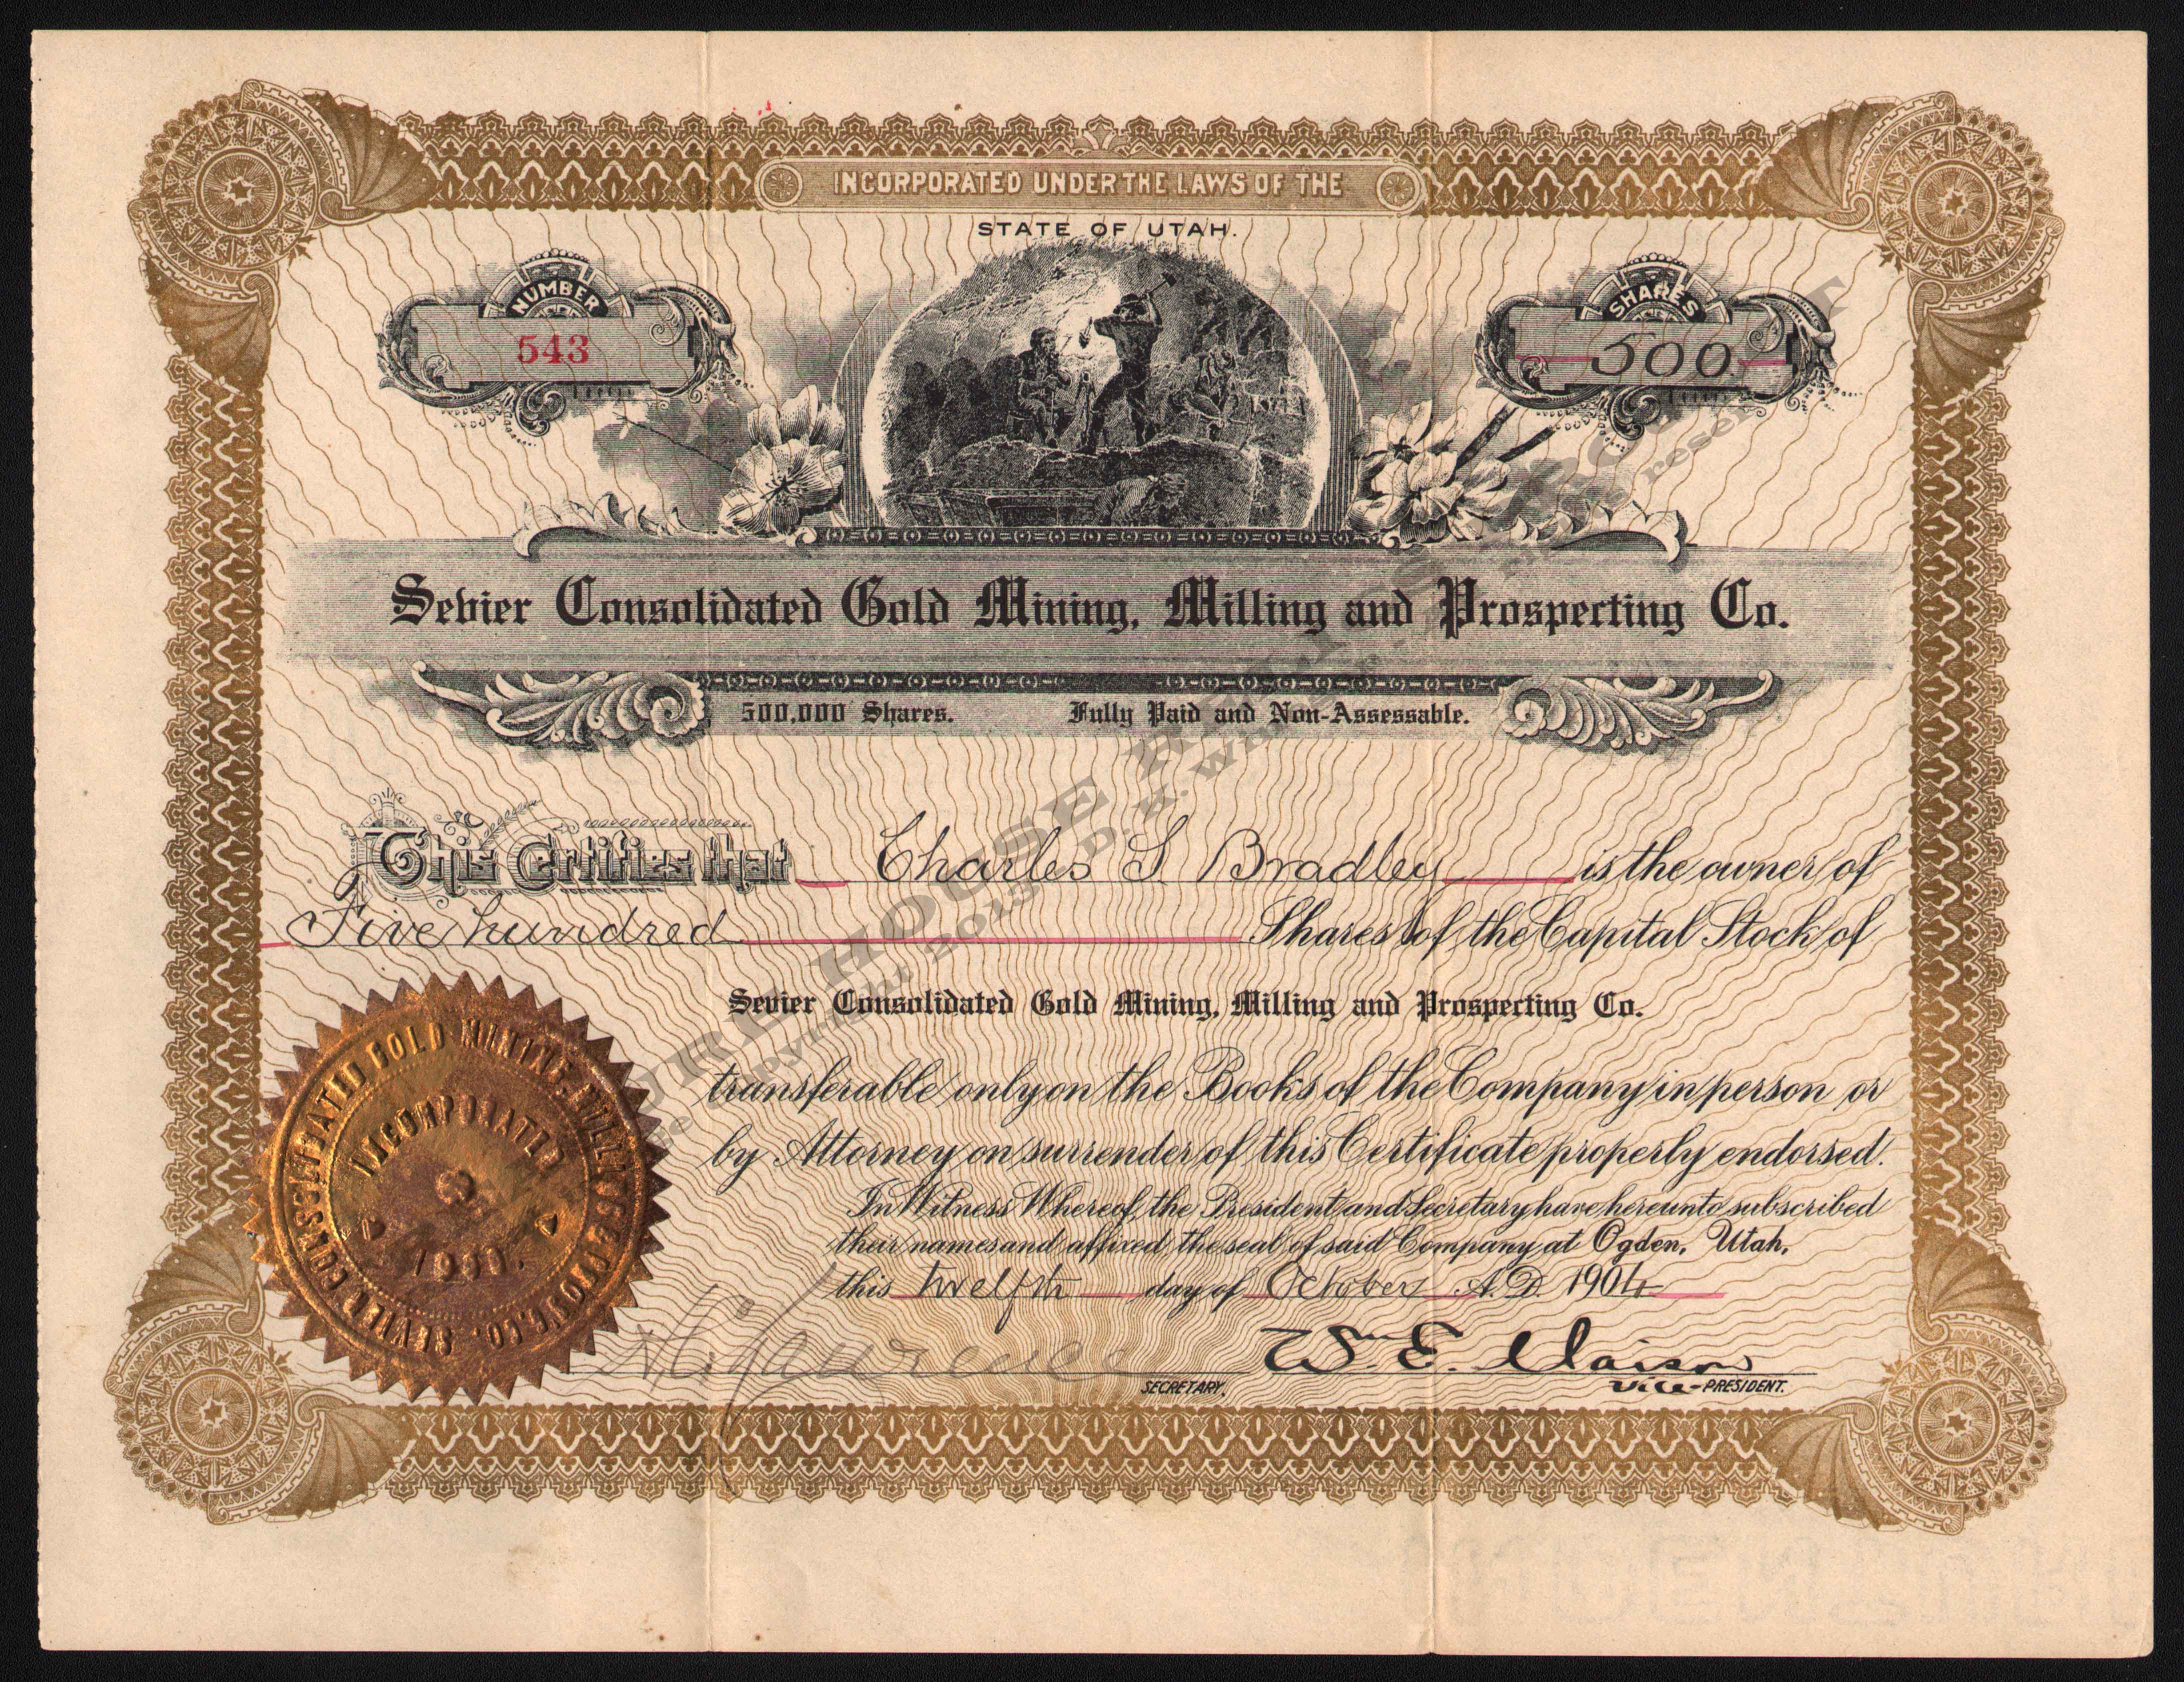 INCORPORATED UNDER THE LAWS OF THE
STATE OF UTAH.
NUMBER
543
SHARES
500
Sevier Consolidated Gold Mining, Milling and Prospecting Co.
500,000 Shares. Fully Paid and Non-Assessable.
This Certifies that Charles S Bradley is the owner of
Five hundred Shares of the Capital Stock of
Sevier Consolidated Gold Mining, Milling and Prospecting Co.
transferable only on the Books of the Company in person or
by Attorney on surrender of this Certificate properly endorsed.
In Witness Whereof, the President and Secretary have hereunto subscribed
their names and affixed the seal of said Company at Ogden, Utah,
this twelfth day of October A.D. 1904
Wm E.
SECRETARY.
Vice-PRESIDENT.
SEVIER CONSOLIDATED GOLD MINING, MILLING & PROS'G. CO.
INCORPORATED